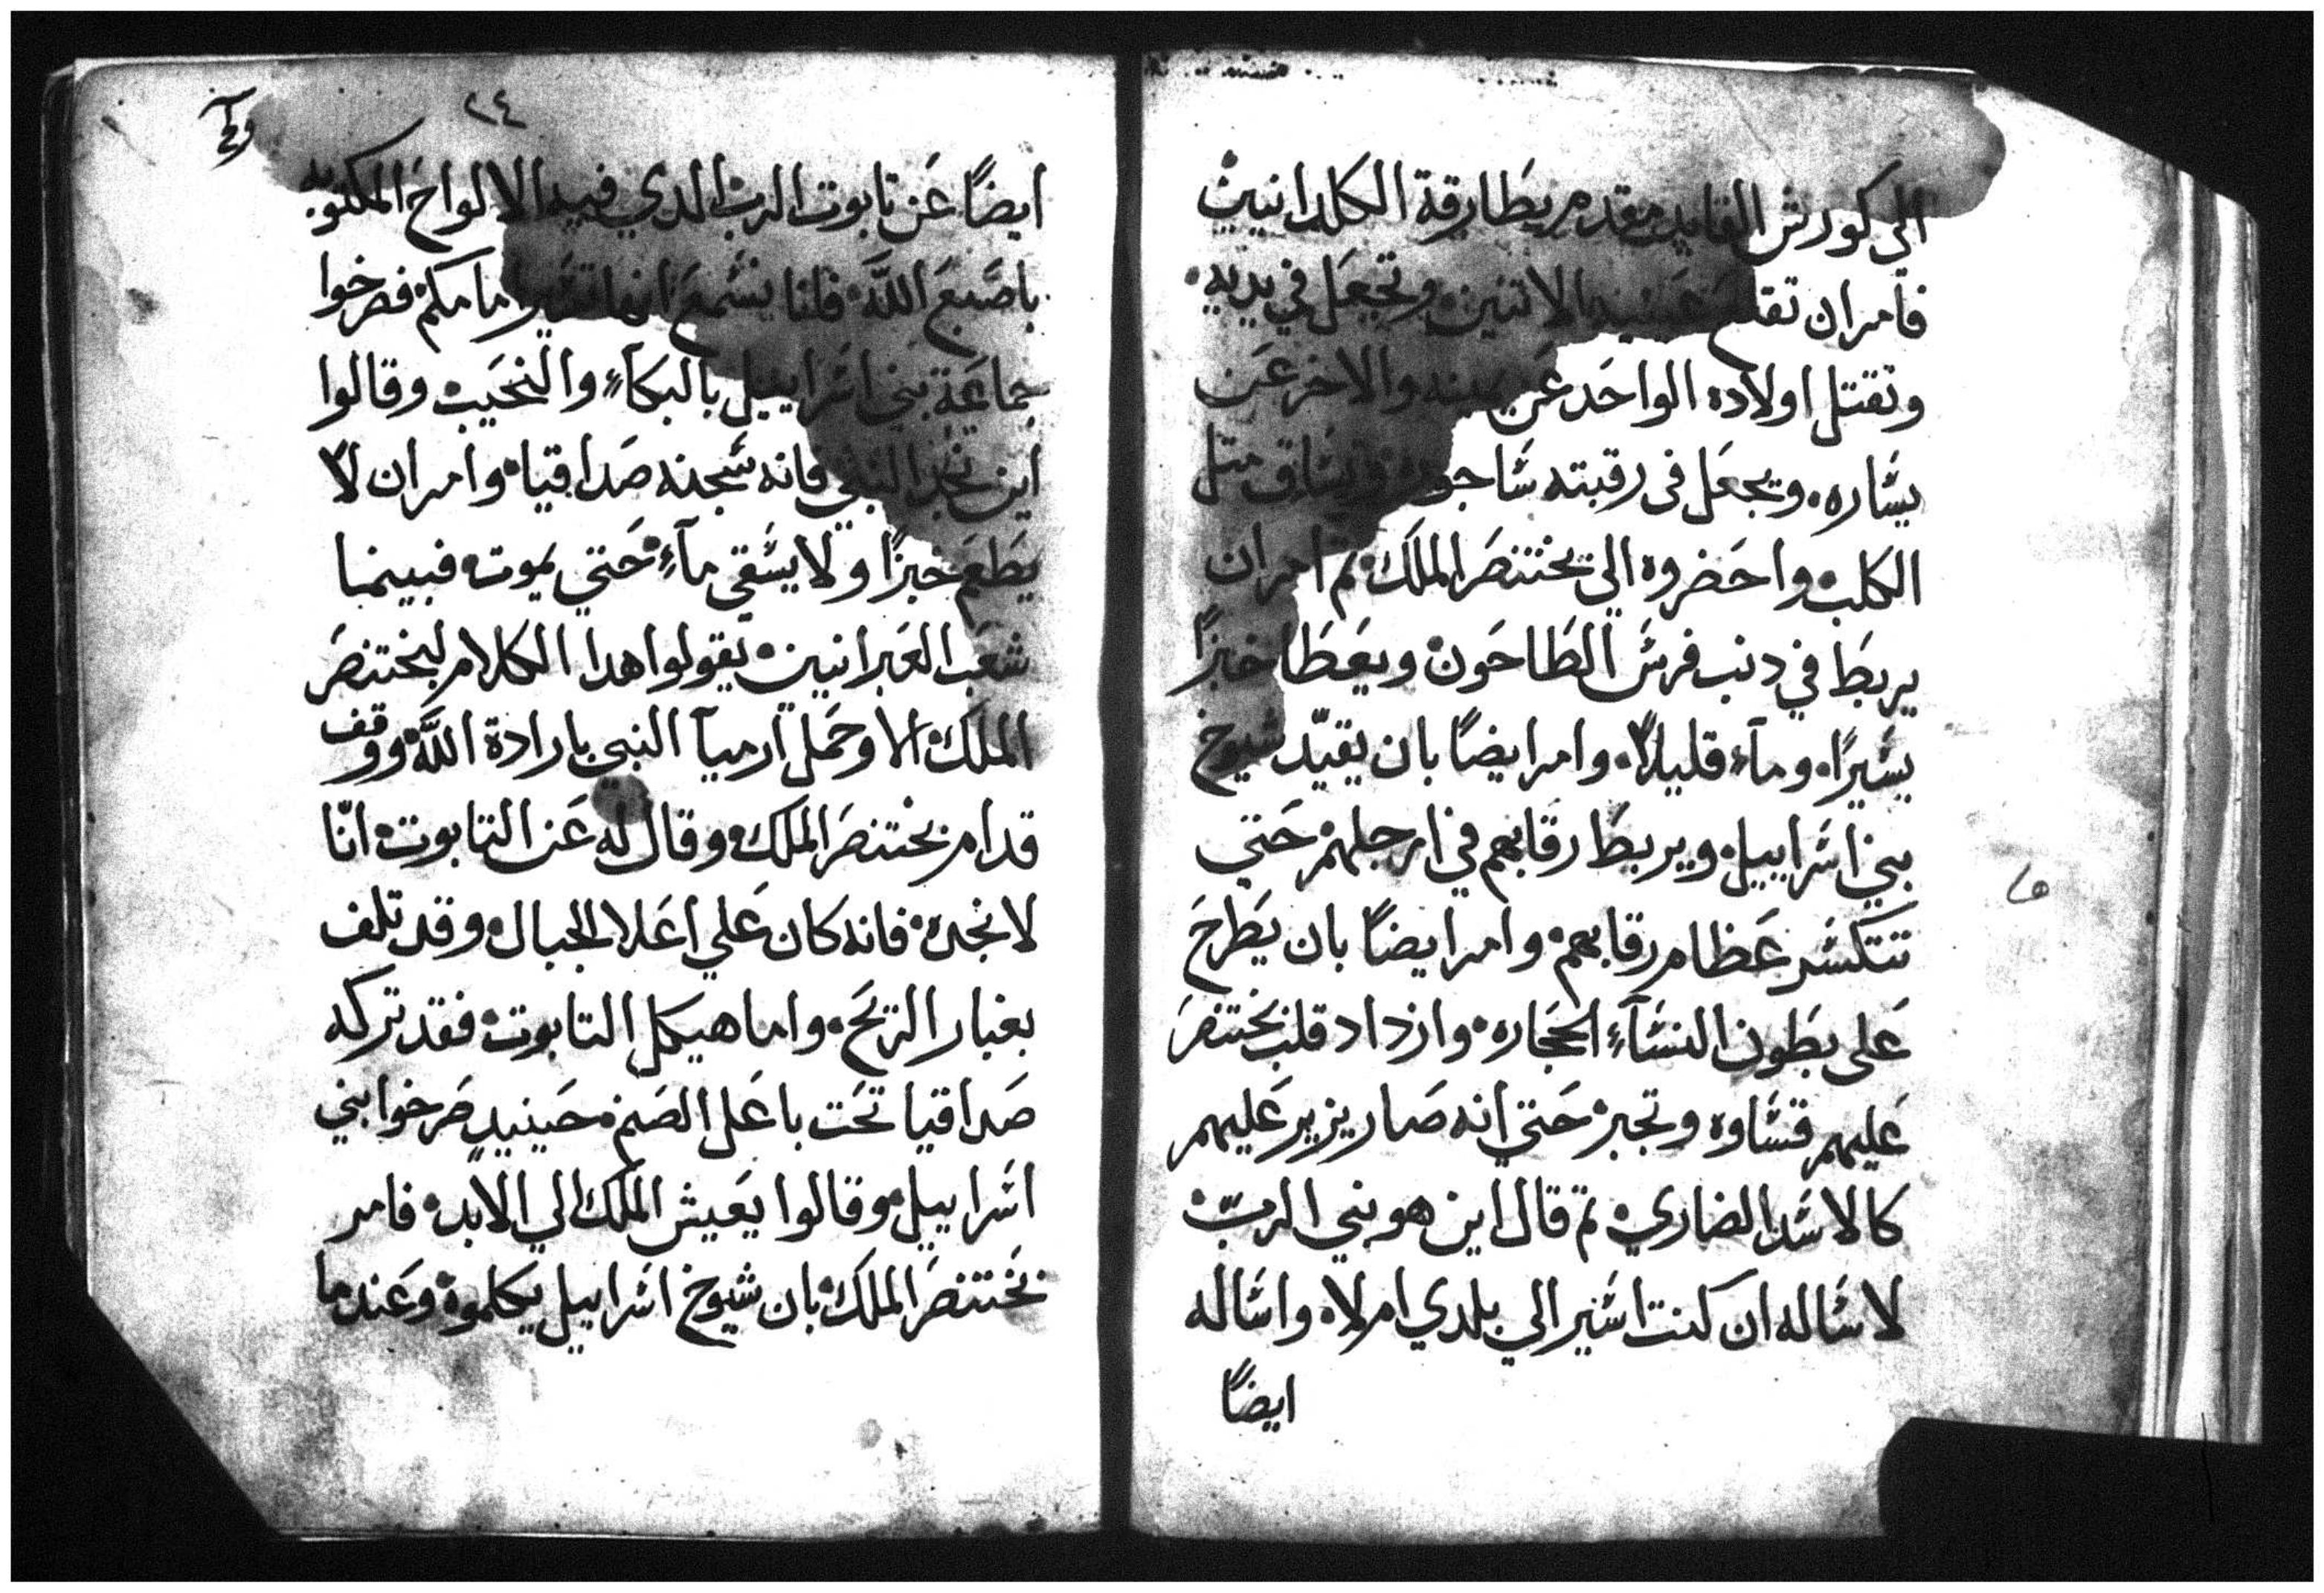 الي كورش القايد مقدم بطارقة الكلدانيين
فامر ان تقلع عينيه الاتنين وتجعل في يديه
وتقتل اولاده الواحد عن يمينه والاخر عن
يساره. ويجعل في رقبته ساجور ويساق متل
الكلب واحضروه الي بختنصر الملك تم امر ان
يربط في دنب فرس الطاحون ويعطا خبزًا
يسيرًا. وماء قليلاً. وامر ايضًا بان يقيّد شيوخ
بني اسراييل ويربط رقابهم في ارجلهم حتي
تتكسر عظام رقابهم وامر ايضًا بان يطرح
على بطون النساء الحجاره وازداد قلب بختنصر
عليهم قساوه وتجبر حتي انه صار يزير عليهم
كالاسد الضاري تم قال اين هو نبي الربّ
لاساله ان كنت اسير الي بلدي ام لا واساله
ايضًا
٢٤
ايضًا عن تابوت الرب الدي فيه الالواح المكتوبه
باصبع الله فاننا نسمع انها تسير امامكم فصرخوا
جماعة بني اسراييل بالبكاء والنحيب وقالوا
اين نجد النبي فانه سجنه صداقيا وامر ان لا
يطعم خبزًا ولا يسقي ماء حتي يموت فبينما
شعب العبرانيين يقولوا هدا الكلام لبختنصر
الملك الا وحمل ارميا النبي بارادة الله ووقف
قدام بختنصر الملك وقال له عن التابوت انّا
لا نجده فانه كان علي اعلا الجبال وقد تلف
بغبار الريح. واما هيكل التابوت فقد تركه
صداقيا تحت باعل الصنم حينيدٍ صرخوا بني
اسراييل وقالوا يعيش الملك الي الابد فامر
بختنصر الملك بان شيوخ اسراييل يكلموه وعندما